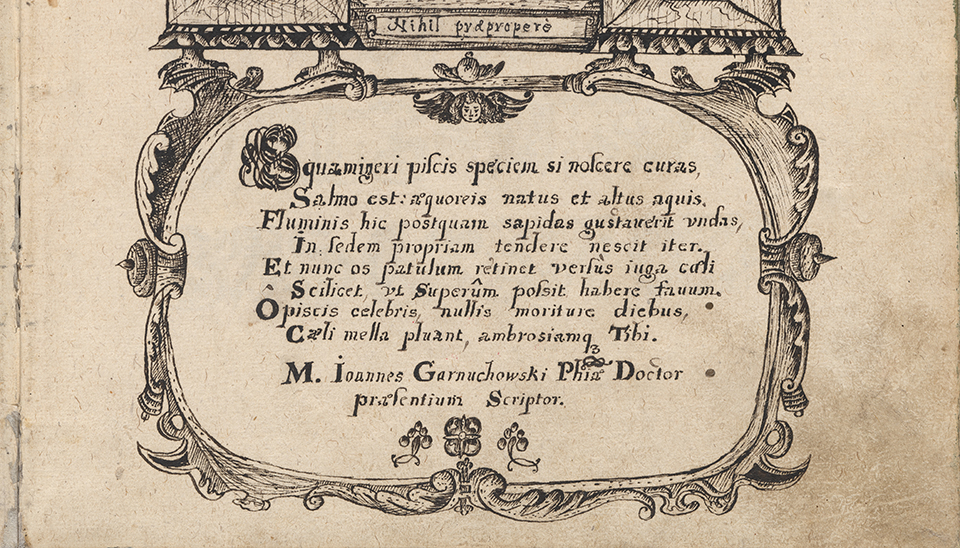 Nihil præpropere
Squamigeri piscis speciem si noscere curas,
Salmo est: æquoreis natus et altus aquis.
Fluminis hic postquam sapidas gustaverit vndas,
In sedem propriam tendere nescit iter.
Et nunc os patulum retinet versùs iuga cœli
Scilicet, vt Superûm possit habere favum.
Ô piscis celebris, nullis moriture diebus,
Cæli mella pluant, ambrosiamq3 Tibi.
M. Ioannes Garnuchowski Phiæ Doctor
præsentium Scriptor.